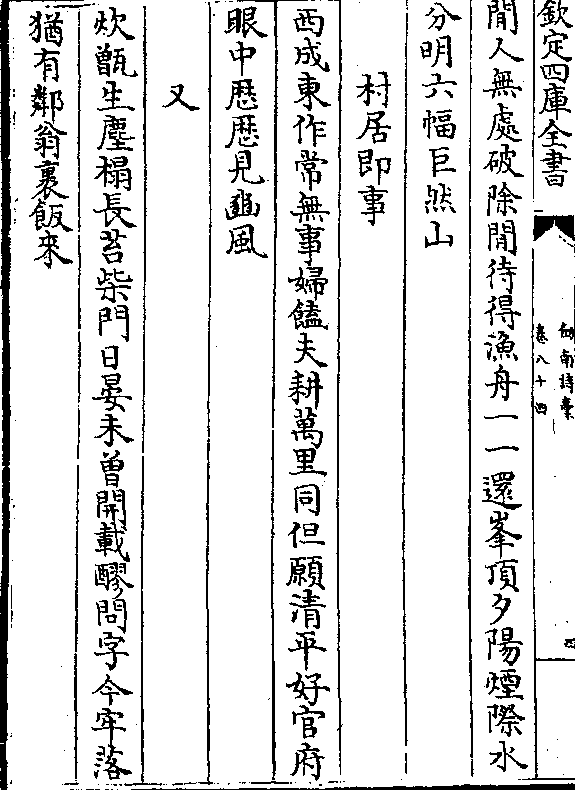 欽定四庫全書
剱南詩藁
卷八十四
四
閒人無處破除閒待得漁舟一一還峯頂夕陽煙際水
分明六幅巨然山
村居即事
西成東作常無事婦饁夫耕萬里同但願清平好官府
眼中歴歴見豳風
又
炊甑生塵榻長苔柴門日晏未曾開載醪問字今牢落
猶有鄰翁裹飯來